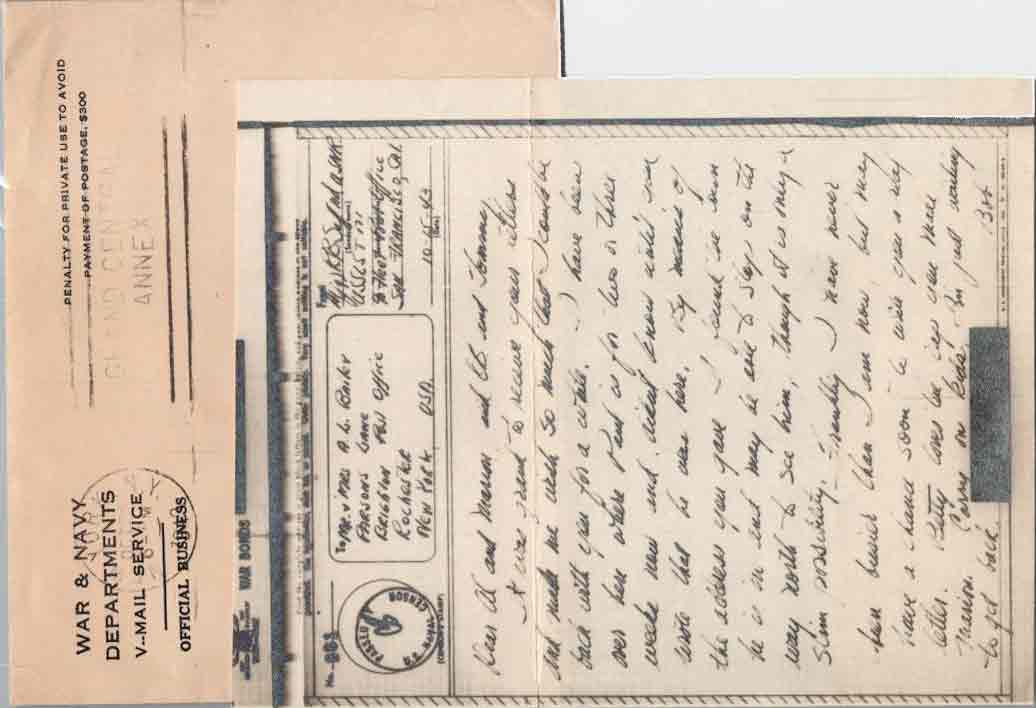 WAR & NAVY
DEPARTMENTS
V--MAIL SERVICE
OFFICIAL BUSINESS
PENALTY FOR PRIVATE USE TO AVOID
PAYMENT OF POSTAGE, $300
GRAND CENTRAL
ANNEX
WAR BONDS
No.
PASSED
NAVAL CENSOR
(CENSOR'S STAMP)
To Mr. & Mrs A. L.
Parsons Lane
Brighton Post Office
Rochester
New York USA
From
USS LST 171
Fleet Post Office
San Francisco, Cal.
10-15-43
(Date)
Dear Al and Marion and and Tommy
It was grand to receive your letters
and made me wish so much that I could be
back with you for a while. I have been
over here where Paul is for two or three
weeks now and didn't know until you
wrote that he was here. By means of
the address you gave I found in own
he is in and may be able to stop on the
way north to see him, though it is only a
slim possibility. Frankly I have never
been busier than I am now, but may
have a chance soon to write you a long
letter. Betty loves being you
Marion. Carry on kids. I'm just waiting
to get back. Bob